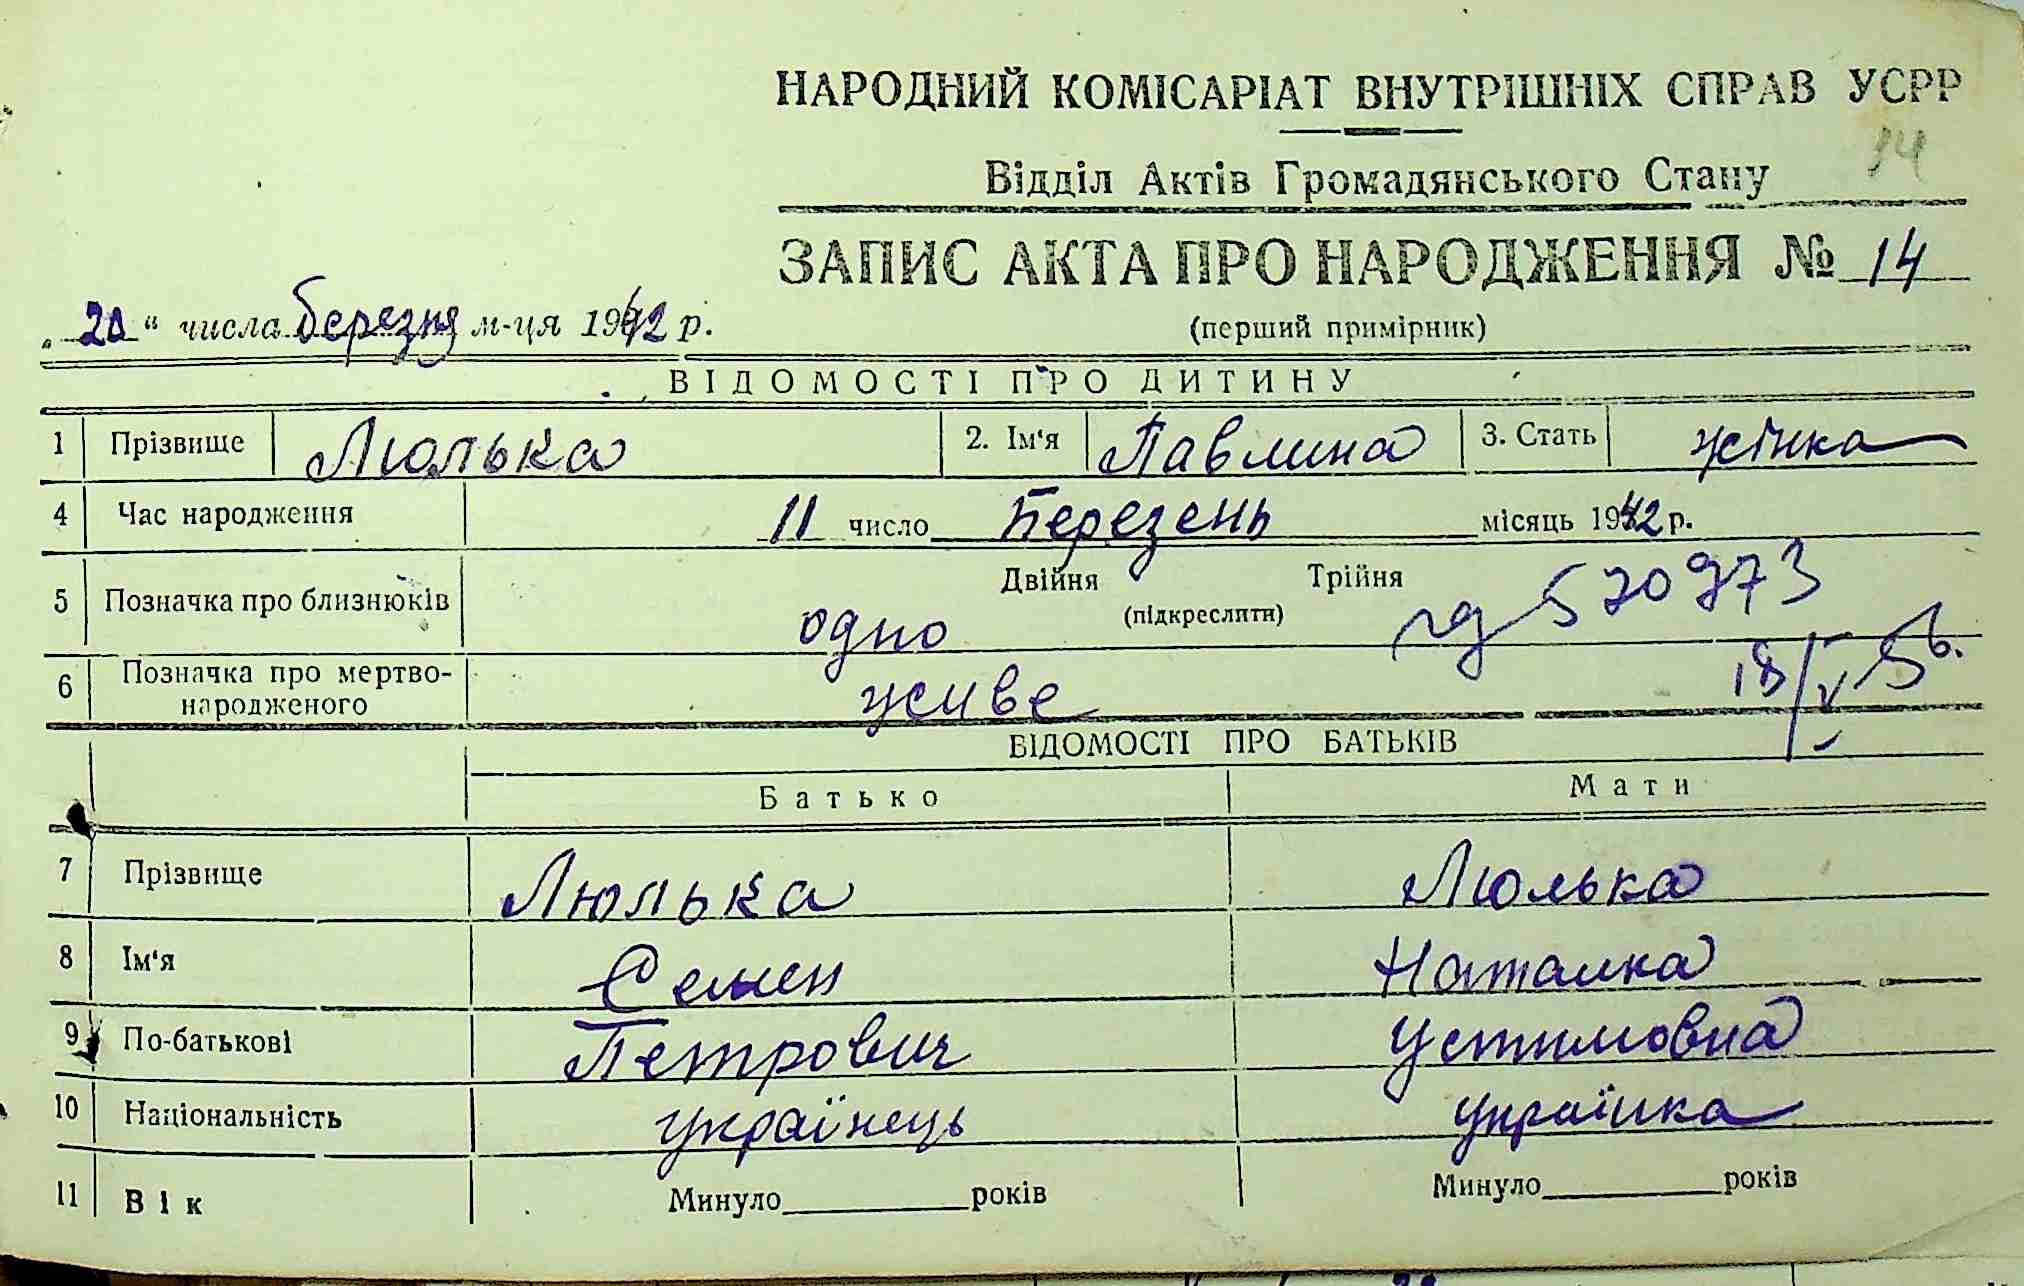 НАРОДНИЙ КОМІСАРІАТ ВНУТРІШНІХ СПРАВ УСРР
14
Відділ Актів Громадянського Стану
ЗАПИС АКТА ПРО НАРОДЖЕННЯ № 14
„20“ числа березня м-ця 1942 р.
(перший примірник)
ВІДОМОСТІ ПРО ДИТИНУ
1 Прізвище Люлька 2. Ім'я Павлина 3. Стать жінка
4 Час народження 11 число Березень місяць 1942 р.
5 Позначка про близнюків Двійня Трійня
(підкреслити)
одно 520973
6 Позначка про мертво-
народженого живе 18/V 56.
ВІДОМОСТІ ПРО БАТЬКІВ
Батько Мати
7 Прізвище Люлька Люлька
8 Ім'я Семен Наталка
9 По-батькові Петрович Устимовна
10 Національність українець українка
11 Вік Минуло років Минуло років